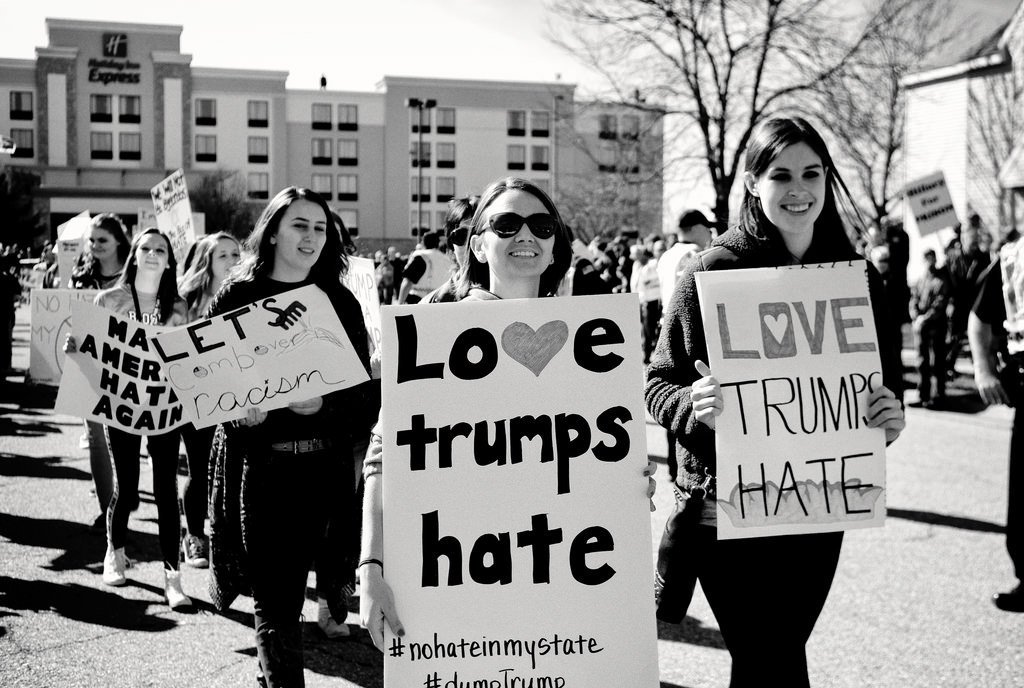 H
Holiday Inn
Express
NO
MY
MA
AMER
HAT
AGAIN
LET'S
Combover
racism
Love
trumps
hate
#nohateinmystate
#dumpTrump
LOVE
TRUMPS
HATE